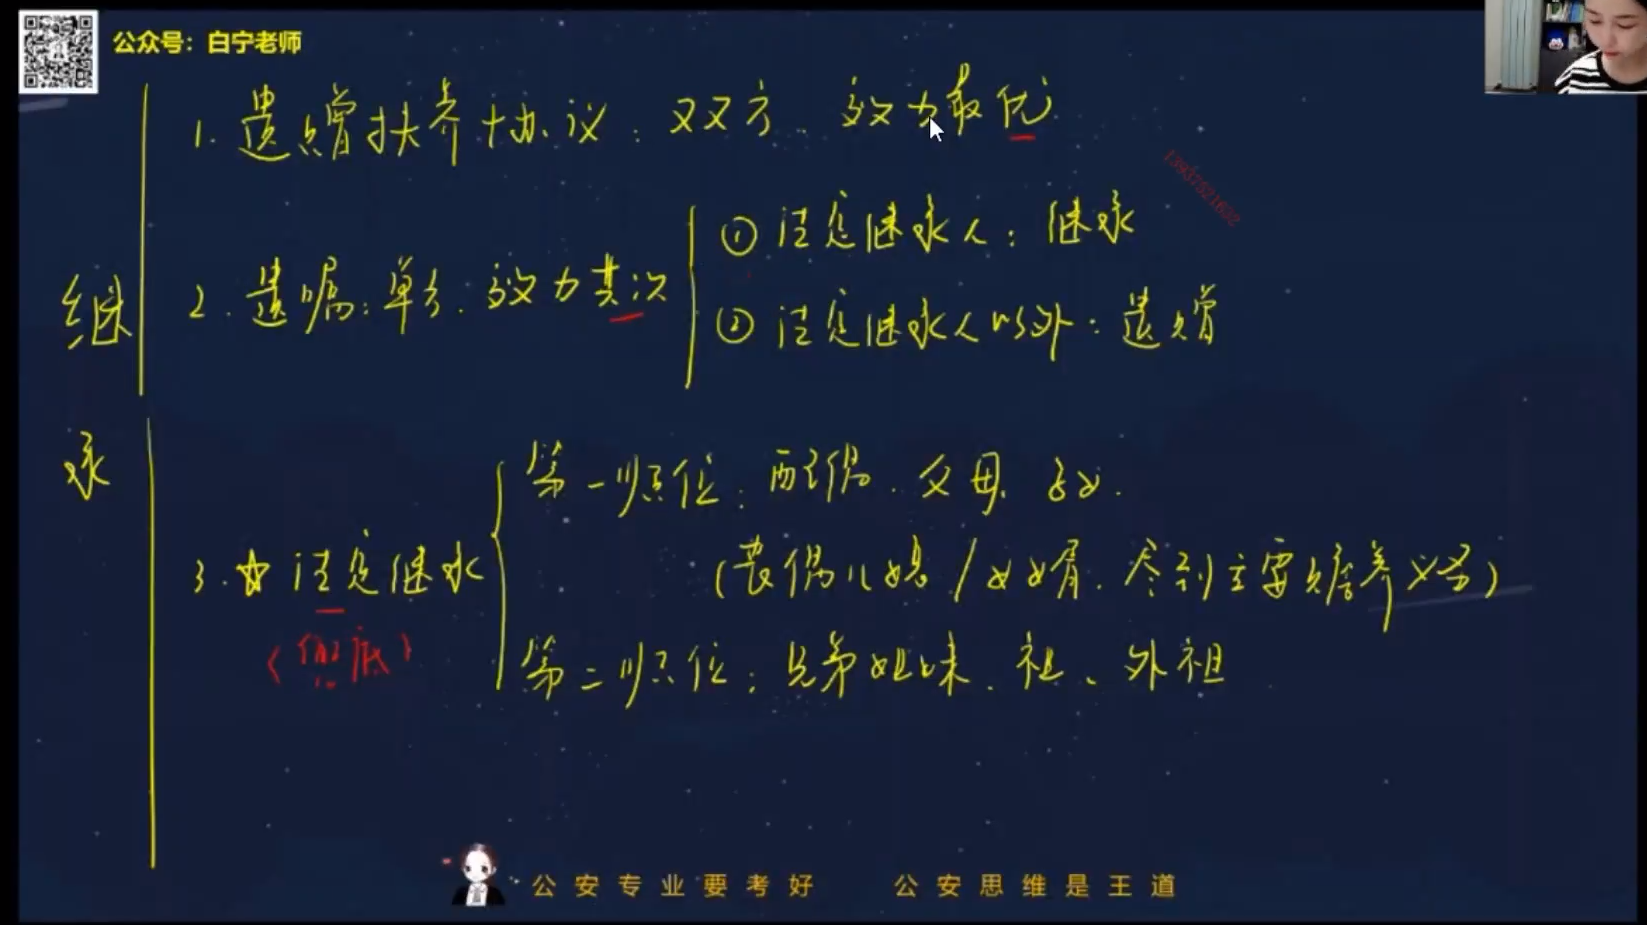 公众号：白宁老师
继承
1. 遗赠扶养协议：双方、效力最优
13937521632
2. 遗嘱：单方、效力其次
① 法定继承人：继承
② 法定继承人以外：遗赠
3. ☆ 法定继承
(兜底)
第一顺位：配偶、父母、子女.
(丧偶儿媳/女婿、尽到主要赡养义务)
第二顺位：兄弟姐妹、祖、外祖
公安专业要考好 公安思维是王道